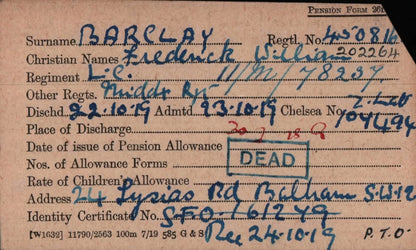 PENSION FORM 261
Surname BARCLAY Regtl. No. 450816
Christian Names Frederick William 202264
Regiment L.C. 11/M/78237
Other Regts. Middx Rgt
Dischd 22.10.19 Admtd 23.10.19 Chelsea No. 104494
Place of Discharge
Date of issue of Pension Allowance
Nos. of Allowance Forms DEAD
Rate of Children's Allowance
Address 24 Lysias Rd Balham S.W.12
Identity Certificate No. SFO-161249
[W1632] 11790/2563 100m 7/19 585 G & S Rec 24.10.19 P.T.O.